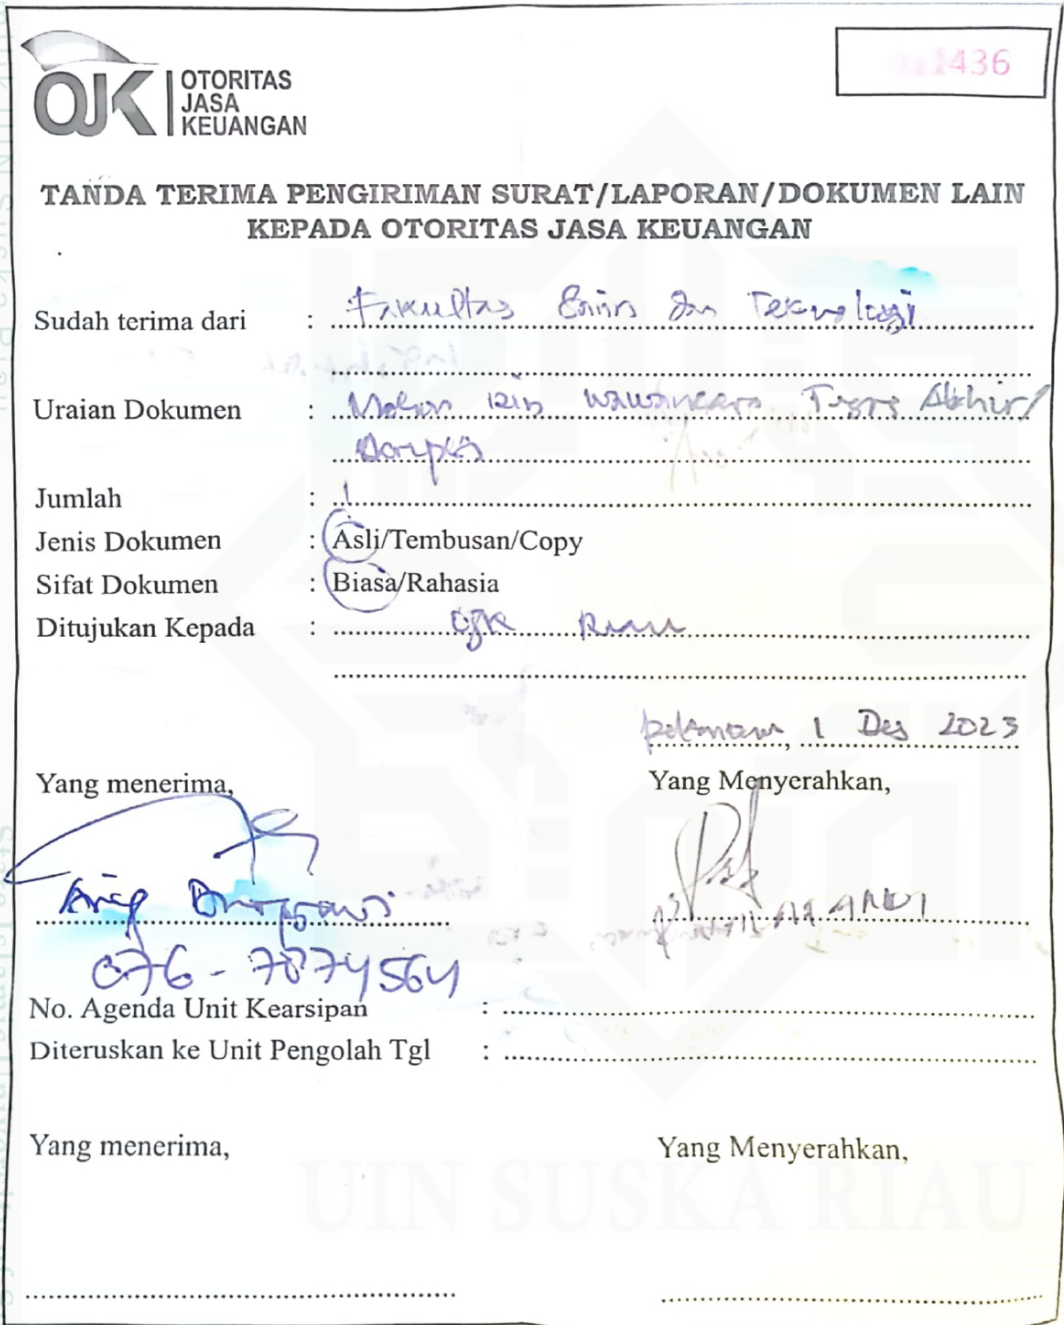 OJK OTORITAS
JASA
KEUANGAN
436
TANDA TERIMA PENGIRIMAN SURAT/LAPORAN/DOKUMEN LAIN
KEPADA OTORITAS JASA KEUANGAN
Sudah terima dari : Fakultas Sains dan Teknologi
Uraian Dokumen : Mohon izin wawancara Tugas Akhir/
Jumlah : 1
Jenis Dokumen : Asli/Tembusan/Copy
Sifat Dokumen : Biasa/Rahasia
Ditujukan Kepada : OJK Riau
, 1 Des 2023
Yang menerima, Yang Menyerahkan,
076-7874564
No. Agenda Unit Kearsipan :
Diteruskan ke Unit Pengolah Tgl :
Yang menerima, Yang Menyerahkan,
UIN SUSKA RIAU